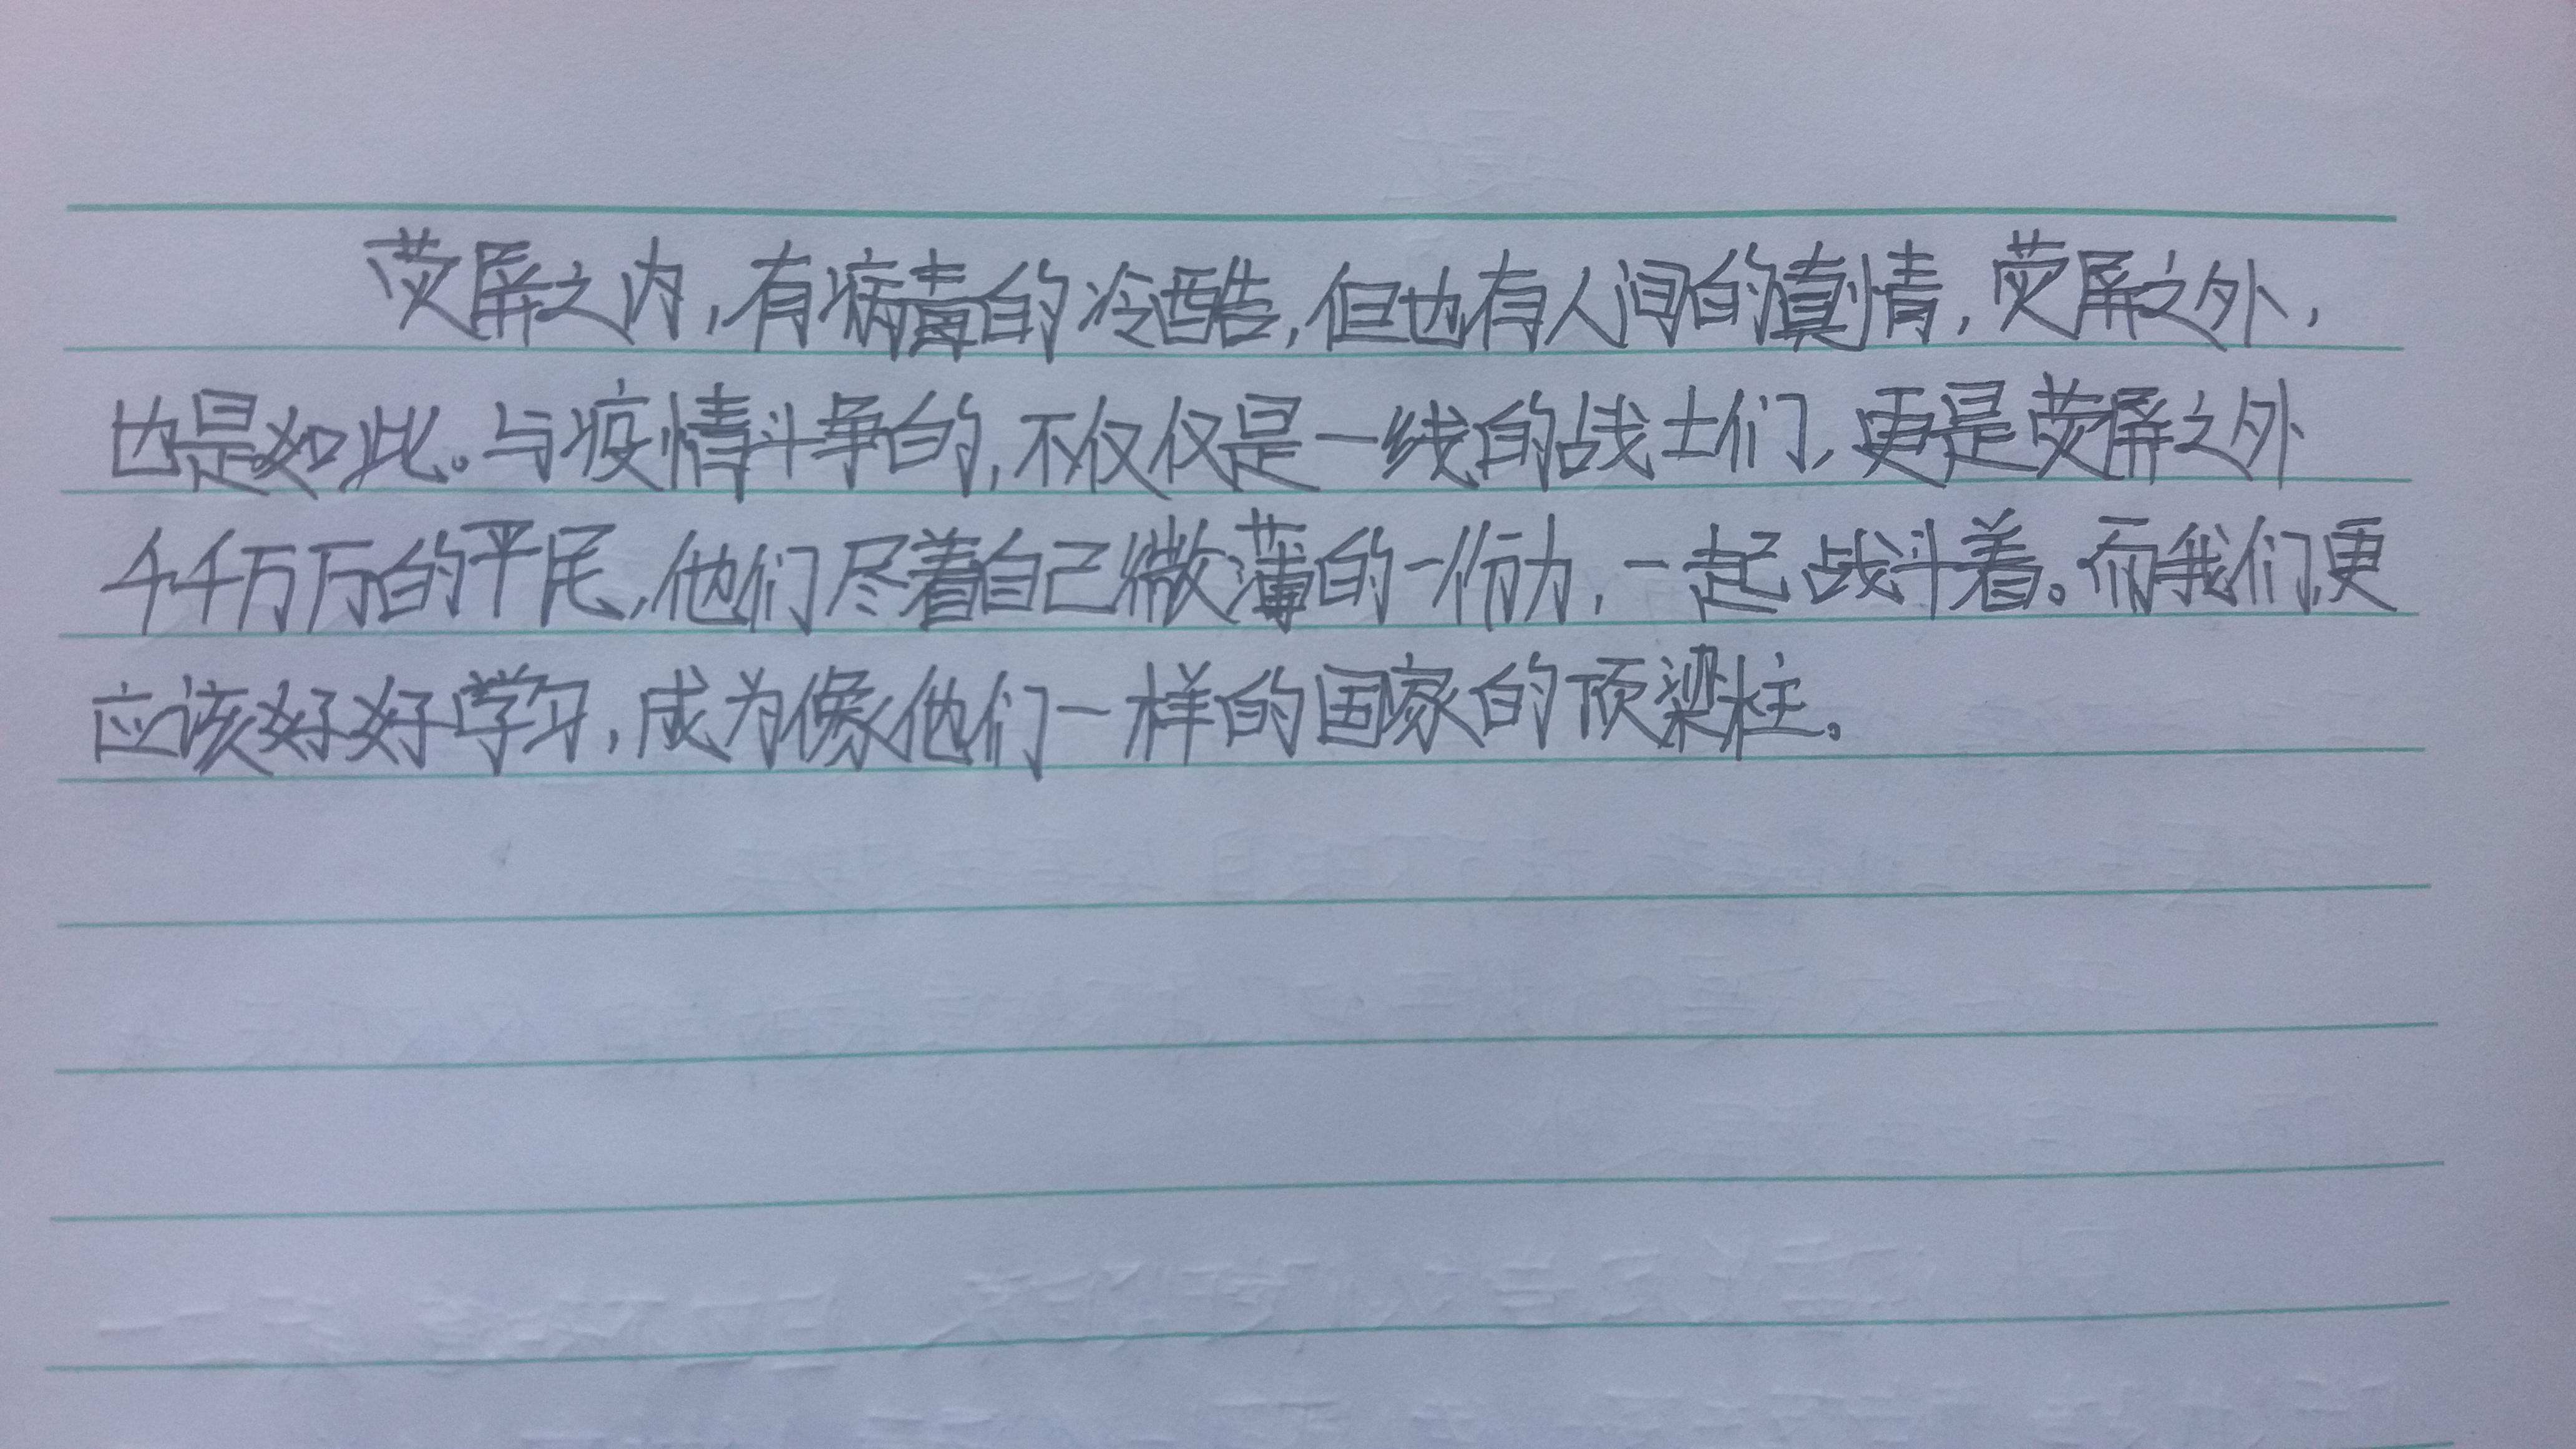 荧屏之内,有病毒的冷酷,但也有人间的真情,荧屏之外,
也是如此。与疫情斗争的,不仅仅是一线的战士们,更是荧屏之外
千千万万的平民,他们尽着自己微薄的一份力,一起战斗着。而我们,更
应该好好学习,成为像他们一样的国家的顶梁柱。